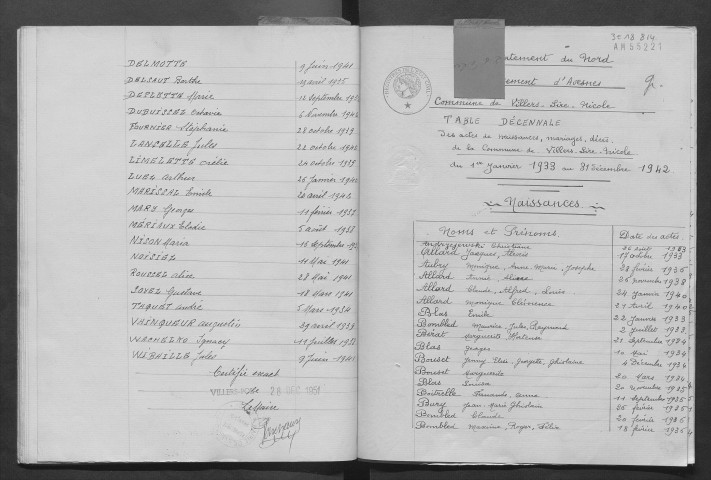 DELMOTTE 9 juin 1941
DELSAUT Berthe avril 1935
DEPLETTA Marie 12 septembre
DUBUISSEZ Octavie 6 novembre 1940
FOURNIER Stéphanie 28 octobre 1939
LANCELLE Jules 22 octobre 1940
LIMELETTE Orélie 24 octobre 1939
LUEZ Arthur 26 janvier 1940
MARISSAL Emile 20 avril 1942
MARY Georges 11 février 1937
MÉRIAUX Elodie 5 août 1938
NISON Maria 16 septembre
NOISIEZ 11 Mai 1941
ROUSSEL Alice 28 Mai 1941
SOREL Gustave 18 Mars 1941
TAQUET André 5 Mars 1934
VAINQUEUR Augustin 29 avril 1939
WACHELKE Ignacy 11 juillet 1938
WIBAILLE Jules 9 juin 1941
Certifié exact
VILLERS-POL le 28 DEC 1951
Le Maire
3E 18 814
AM 55221
Département du Nord
Arrondissement d'Avesnes
Commune de Villers-Sire-Nicole
TABLE DÉCENNALE
Des actes de naissances, mariages, décès
de la Commune de Villers-Sire-Nicole
du 1er janvier 1933 au 31 décembre 1942
Naissances
Noms et Prénoms. Date des actes
Andrzejewski Christiane
Allard Jacques, Alexis 17 octobre 1933
Aubry Monique, Anne, Marie, Josephe 28 février 1935
Allard 26 novembre 1938
Allard Claude, Alfred, Louis 24 janvier 1940
Allard Monique Clémence 21 avril 1940
Blas Emile 22 janvier 1933
Bombled Maurice, Jules, Raymond 2 juillet 1933
Bérat Marguerite Hortense 21 septembre 1934
Blas Georges 10 Mai 1934
Bousez Jenny, Elise, Georgette, Ghislaine 4 décembre 1934
Bousez Marguerite 20 Mars 1934
Blas Louise 20 novembre 1935
Boitrelle Fernande, Anna 11 septembre 1935
Bury Jean-Marie Ghislain 26 février 1935
Bombled Claude 20 février 1935
Bombled Maxime, Roger, Félix 18 février 1935